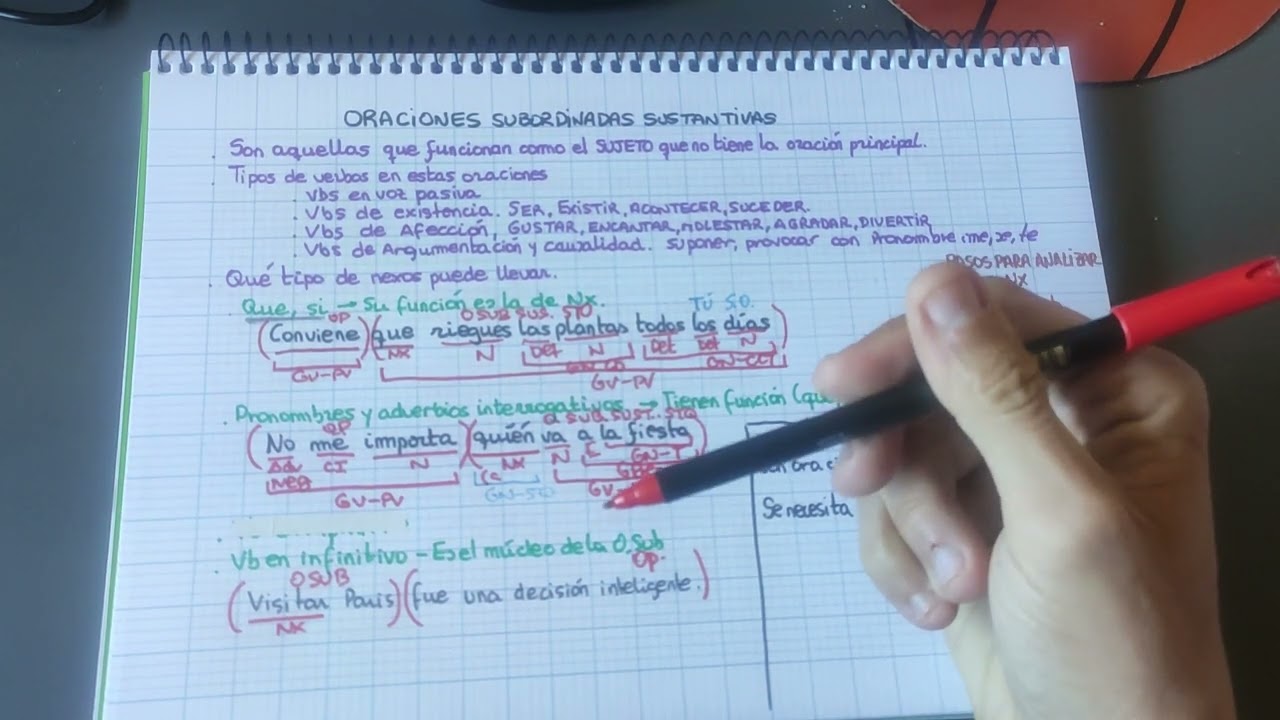 ORACIONES SUBORDINADAS SUSTANTIVAS
. Son aquellas que funcionan como el SUJETO que no tiene la oración principal.
. Tipos de verbos en estas oraciones
. Vbs en voz pasiva
. Vbs de existencia. SER, EXISTIR, ACONTECER, SUCEDER.
. Vbs de Afección, GUSTAR, ENCANTAR, MOLESTAR, AGRADAR, DIVERTIR
. Vbs de Argumentación y causalidad. suponer, provocar con Pronombre: me, se, te
PASOS PARA ANALIZAR
NX
. Qué tipo de nexos puede llevar.
. Que, si → Su función es la de Nx.
OP O SUB SUS. STO TÚ S.O.
(Conviene) (que riegues las plantas todos los días)
NX N Det N Det Det N
GV-PV GN-CD GN-CCT
GV-PV
. Pronombres y adverbios interrogativos → Tienen función (qu
OP O SUB SUST. STO
(No me importa) (quién va a la fiesta)
Adv CI N NX N E GN-T
Neg
GV-PV GN-SO GV-
Se necesita
. Vb en infinitivo - Es el núcleo de la O.Sub
O SUB OP.
(Visitar Paris) (fue una decisión inteligente.)
NX